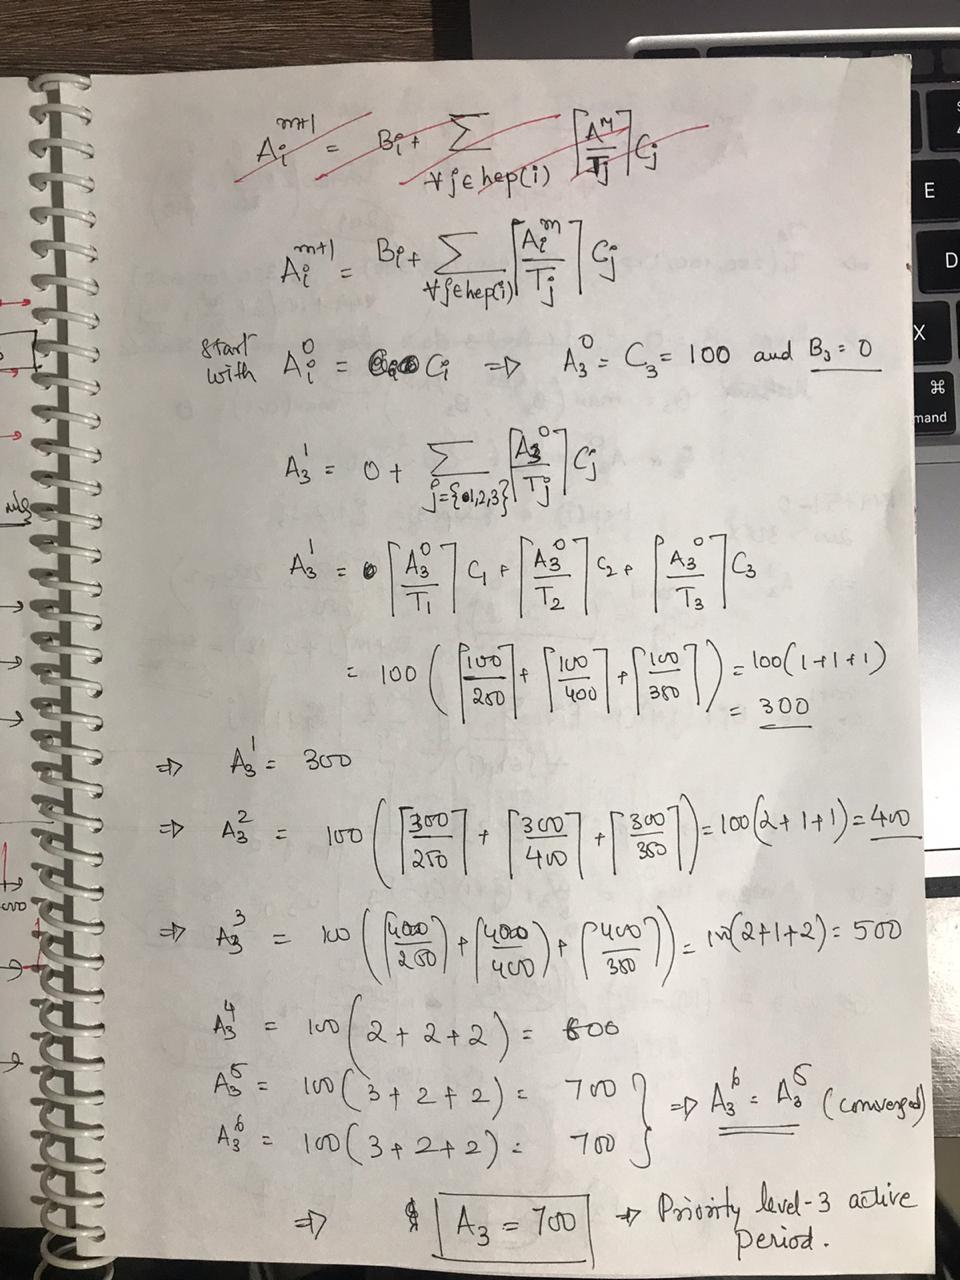 A_i^{m+1} = B_i + Σ_{∀j∈hep(i)} ⌈A^m/T_j⌉ C_j
A_i^{m+1} = B_i + Σ_{∀j∈hep(i)} ⌈A_i^m/T_j⌉ C_j
start with A_i^0 = C_i ⇒ A_3^0 = C_3 = 100 and B_3 = 0
A_3^1 = 0 + Σ_{j={1,2,3}} ⌈A_3^0/T_j⌉ C_j
A_3^1 = ⌈A_3^0/T_1⌉ C_1 + ⌈A_3^0/T_2⌉ C_2 + ⌈A_3^0/T_3⌉ C_3
= 100 (⌈100/250⌉ + ⌈100/400⌉ + ⌈100/350⌉) = 100(1+1+1)
= 300
⇒ A_3^1 = 300
⇒ A_3^2 = 100 (⌈300/250⌉ + ⌈300/400⌉ + ⌈300/350⌉) = 100(2+1+1) = 400
⇒ A_3^3 = 100 (⌈400/250⌉ + ⌈400/400⌉ + ⌈400/350⌉) = 100(2+1+2) = 500
A_3^4 = 100 (2+2+2) = 600
A_3^5 = 100 (3+2+2) = 700
A_3^6 = 100 (3+2+2) = 700
⇒ A_3^6 = A_3^5 (converged)
⇒ A_3 = 700 → Priority level-3 active period.
E
D
X
⌘
mand